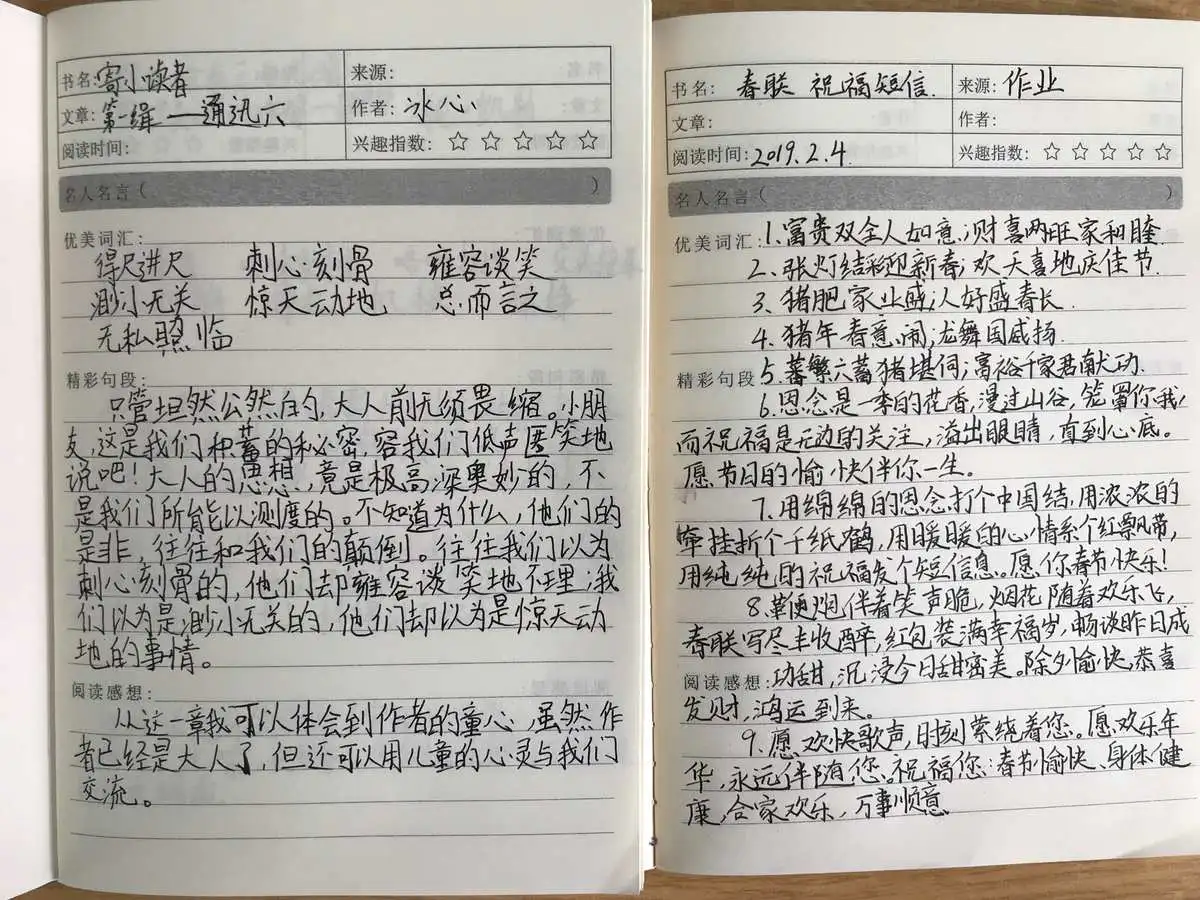 书名:寄小读者 来源:
文章:第一辑——通迅六 作者:冰心
阅读时间: 兴趣指数:☆☆☆☆☆
名人名言( )
优美词汇:
得尺进尺 刺心刻骨 雍容谈笑
渺小无关 惊天动地 总而言之
无私照临
精彩句段:
只管坦然公然的,大人前无须畏缩。小朋
友,这是我们积蓄的秘密,容我们低声匿笑地
说吧!大人的思想,竟是极高深奥妙的,不
是我们所能以测度的。不知道为什么,他们的
是非,往往和我们的颠倒。往往我们以为
刺心刻骨的,他们却雍容谈笑地不理;我
们以为是渺小无关的,他们却以为是惊天动
地的事情。
阅读感想:
从这一章我可以体会到作者的童心,虽然作
者已经是大人了,但还可以用儿童的心灵与我们
交流。
书名: 春联 祝福短信 来源:作业
文章: 作者:
阅读时间:2019.2.4. 兴趣指数:☆☆☆☆☆
名人名言( )
优美词汇:1.富贵双全人如意;财喜两旺家和睦.
2.张灯结彩迎新春;欢天喜地庆佳节.
3.猪肥家业盛;人好盛春长.
4.猪年春意闹;龙舞国威扬.
精彩句段5.蕃繁六蓄猪堪伺;富裕千家君献功.
6.思念是一季的花香,漫过山谷,笼罩你我,
而祝福是无边的关注,溢出眼睛,直到心底。
愿节日的愉快伴你一生。
7.用绵绵的思念打个中国结,用浓浓的
牵挂折个千纸鹤,用暖暖的心情系个红飘带,
用纯纯的祝福发个短信息。愿你春节快乐!
8.鞭炮伴着笑声脆,烟花随着欢乐飞,
春联写尽丰收醉,红包装满幸福岁,畅谈昨日成
阅读感想:功甜,沉浸今日甜密美。除夕愉快,恭喜
发财,鸿运到来。
9.愿欢快歌声,时刻萦绕着您。愿欢乐年
华,永远伴随您。祝福您:春节愉快、身体健
康,合家欢乐,万事顺意